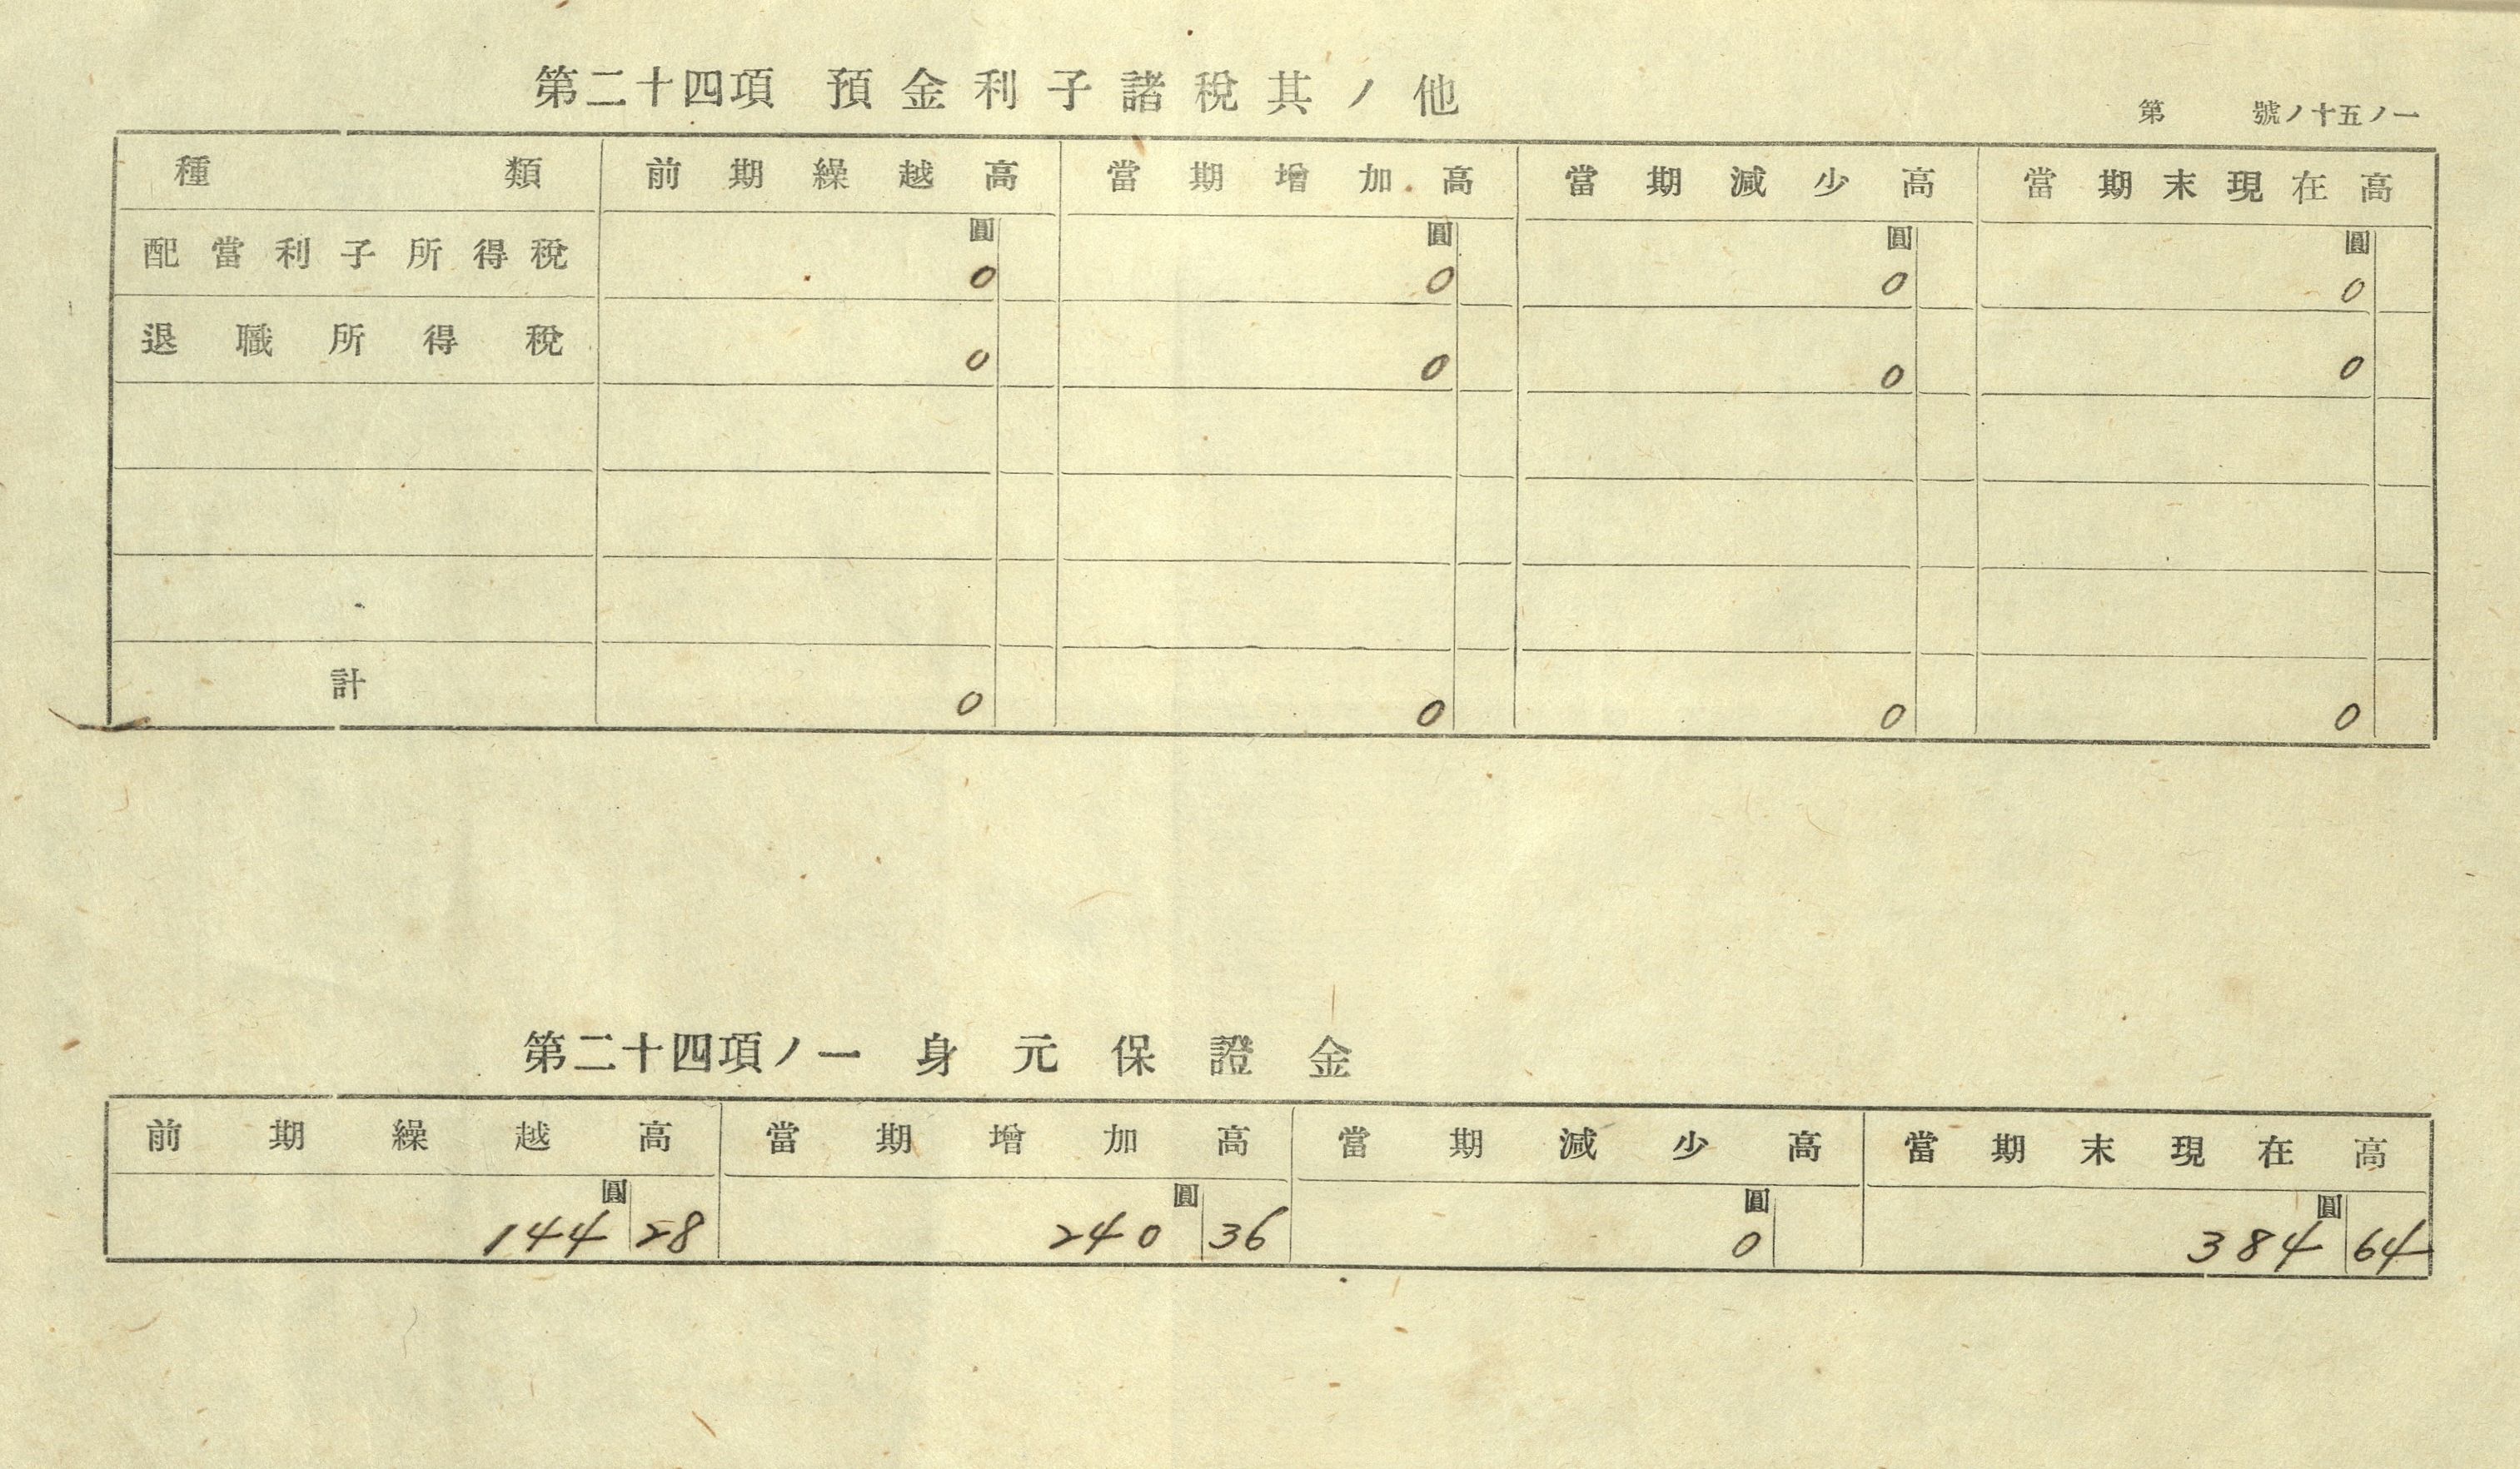 第二十四項 預金利子諸税其ノ他
第 號ノ十五ノ一
種類 前期繰越高 當期增加高 當期減少高 當期末現在高
圓 圓 圓 圓
配當利子所得税 0 0 0 0
退職所得税 0 0 0 0
計 0 0 0 0
第二十四項ノ一 身元保證金
前期繰越高 當期增加高 當期減少高 當期末現在高
圓 圓 圓 圓
144 28 240 36 0 384 64